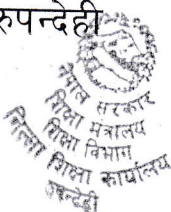 रुपन्देही
नेपाल सरकार
शिक्षा मंत्रालय
शिक्षा विभाग
जिल्ला शिक्षा कार्यालय
रुपन्देही